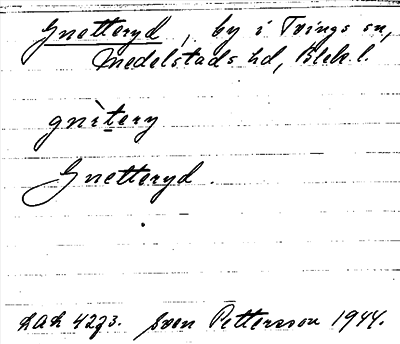 Gnetteryd, by i Tvings sn,
Medelstads hd, Blek. l.
gnìtery
Gnetteryd.
Sven Pettersson 1944.